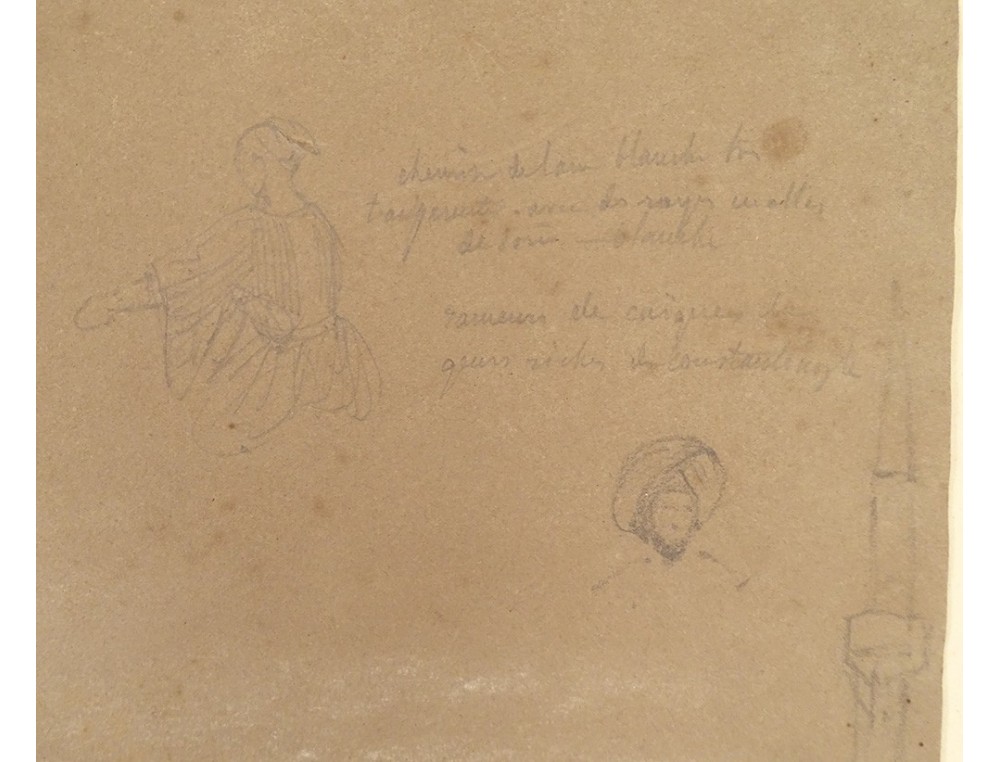 chemise de laine blanche très
transparente. avec des rayes mattes
de soie – blanche
rameurs de caiques de
gens riches de constantinople